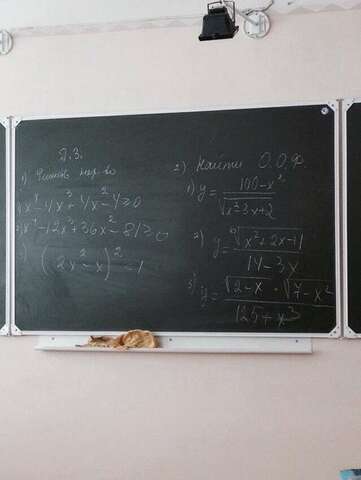 Д.З.
1) Решить нер-во
1) x⁴-4x³+4x²-4≥0
2) x⁴-12x³+36x²-81≥0
3) (2x²-x)²-1
2) Найти О.О.Ф.
1) y = 100-x² / √x²-3x+2
2) y = ⁶√x²+2x-11 / 14-3x
3) y = √2-x · √4-x² / 125+x³